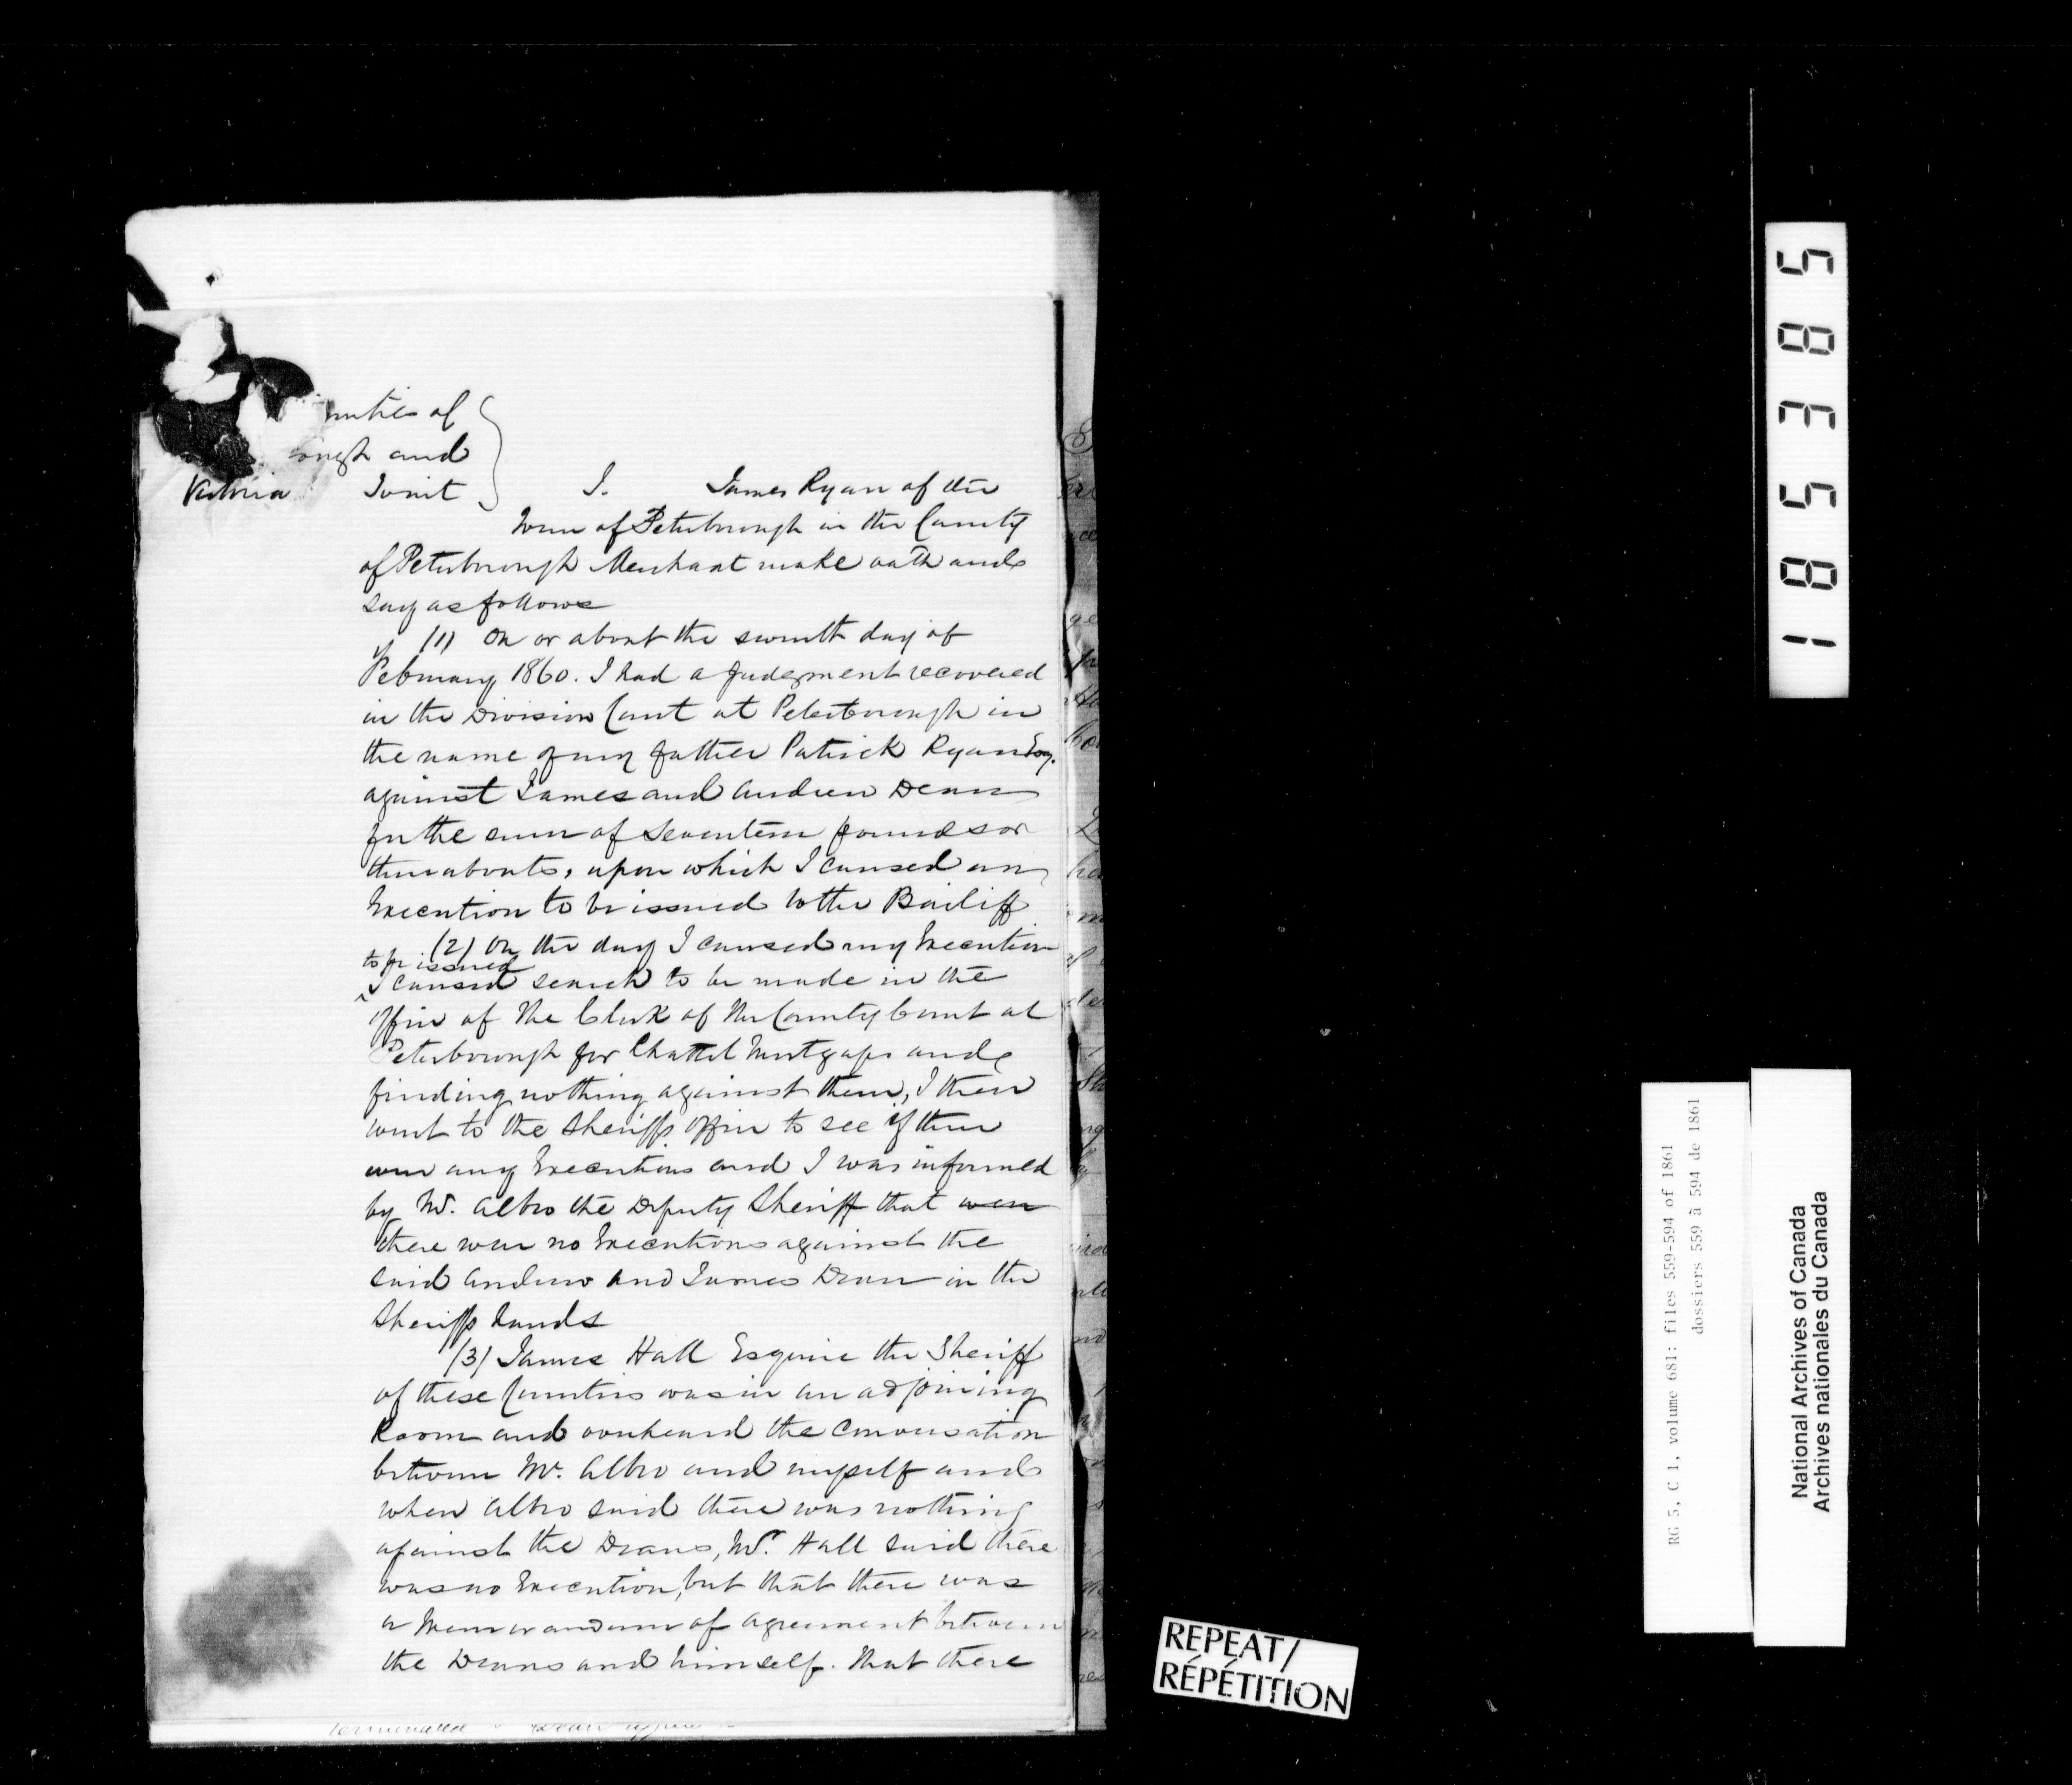 nties of
ough and
Victoria Tonit
I. James Ryan of the
Town of Peterborough in the County
of Peterborough Merchant make oath and
say as follows
(1) On or about the seventh day of
February 1860. I had a judgment recovered
in the Division Court at Peterborough in
the name of my father Patrick Ryan Esq.
against James and Andrew Dean
for the sum of seventeen pounds or
thereabouts, upon which I caused an
Execution to be issued to the Bailiff
(2) On the day I caused my Execution
to be issued
^ I caused search to be made in the
Office of the Clerk of the County Court at
Peterborough for Chattel Mortgages and
finding nothing against them, I then
went to the Sheriffs Office to see if there
were any Executions and I was informed
by Mr. Albro the Deputy Sheriff that were
there were no Executions against the
said Andrew and James Dean in the
Sheriffs hands
(3) James Hall Esquire the Sheriff
of these Counties was in an adjoining
Room and overheard the conversation
between Mr. Albro and myself and
when Albro said there was nothing
against the Deans, Mr. Hall said there
was no Execution, but that there was
a Memorandum of agreement between
the Deans and himself. That there
185385
RG 5, C 1, volume 681: files 559-594 of 1861
dossiers 559 à 594 de 1861
National Archives of Canada
Archives nationales du Canada
REPEAT/
RÉPÉTITION